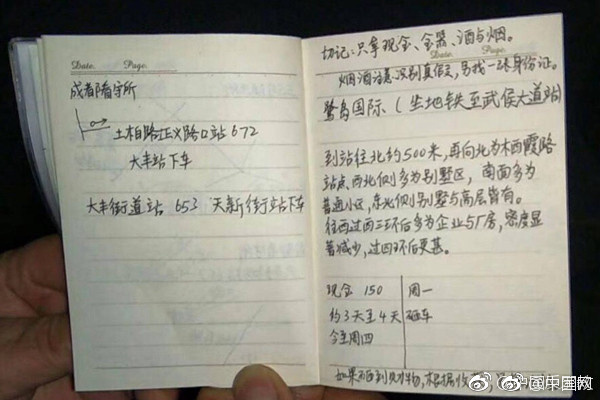 Date. Page.
成都看守所
土柏路正义路口站 672
大丰站下车
大丰街道站 653 天新街站下车
切记：只拿现金、金器、酒与烟。
Date. Page.
烟酒注意识别真假，另找一张身份证。
鹭岛国际（坐地铁至武侯大道站）
到站往北约500米，再向北为木西霞路
站点、西北侧多为别墅区，南面多为
普通小区，东北侧别墅与高层皆有。
往西过西三环后多为企业与厂房，密度显
著减少，过四环后更甚。
现金 150 周一
约3天至4天 砸车
今至周四
如果
物，根据收
中国网